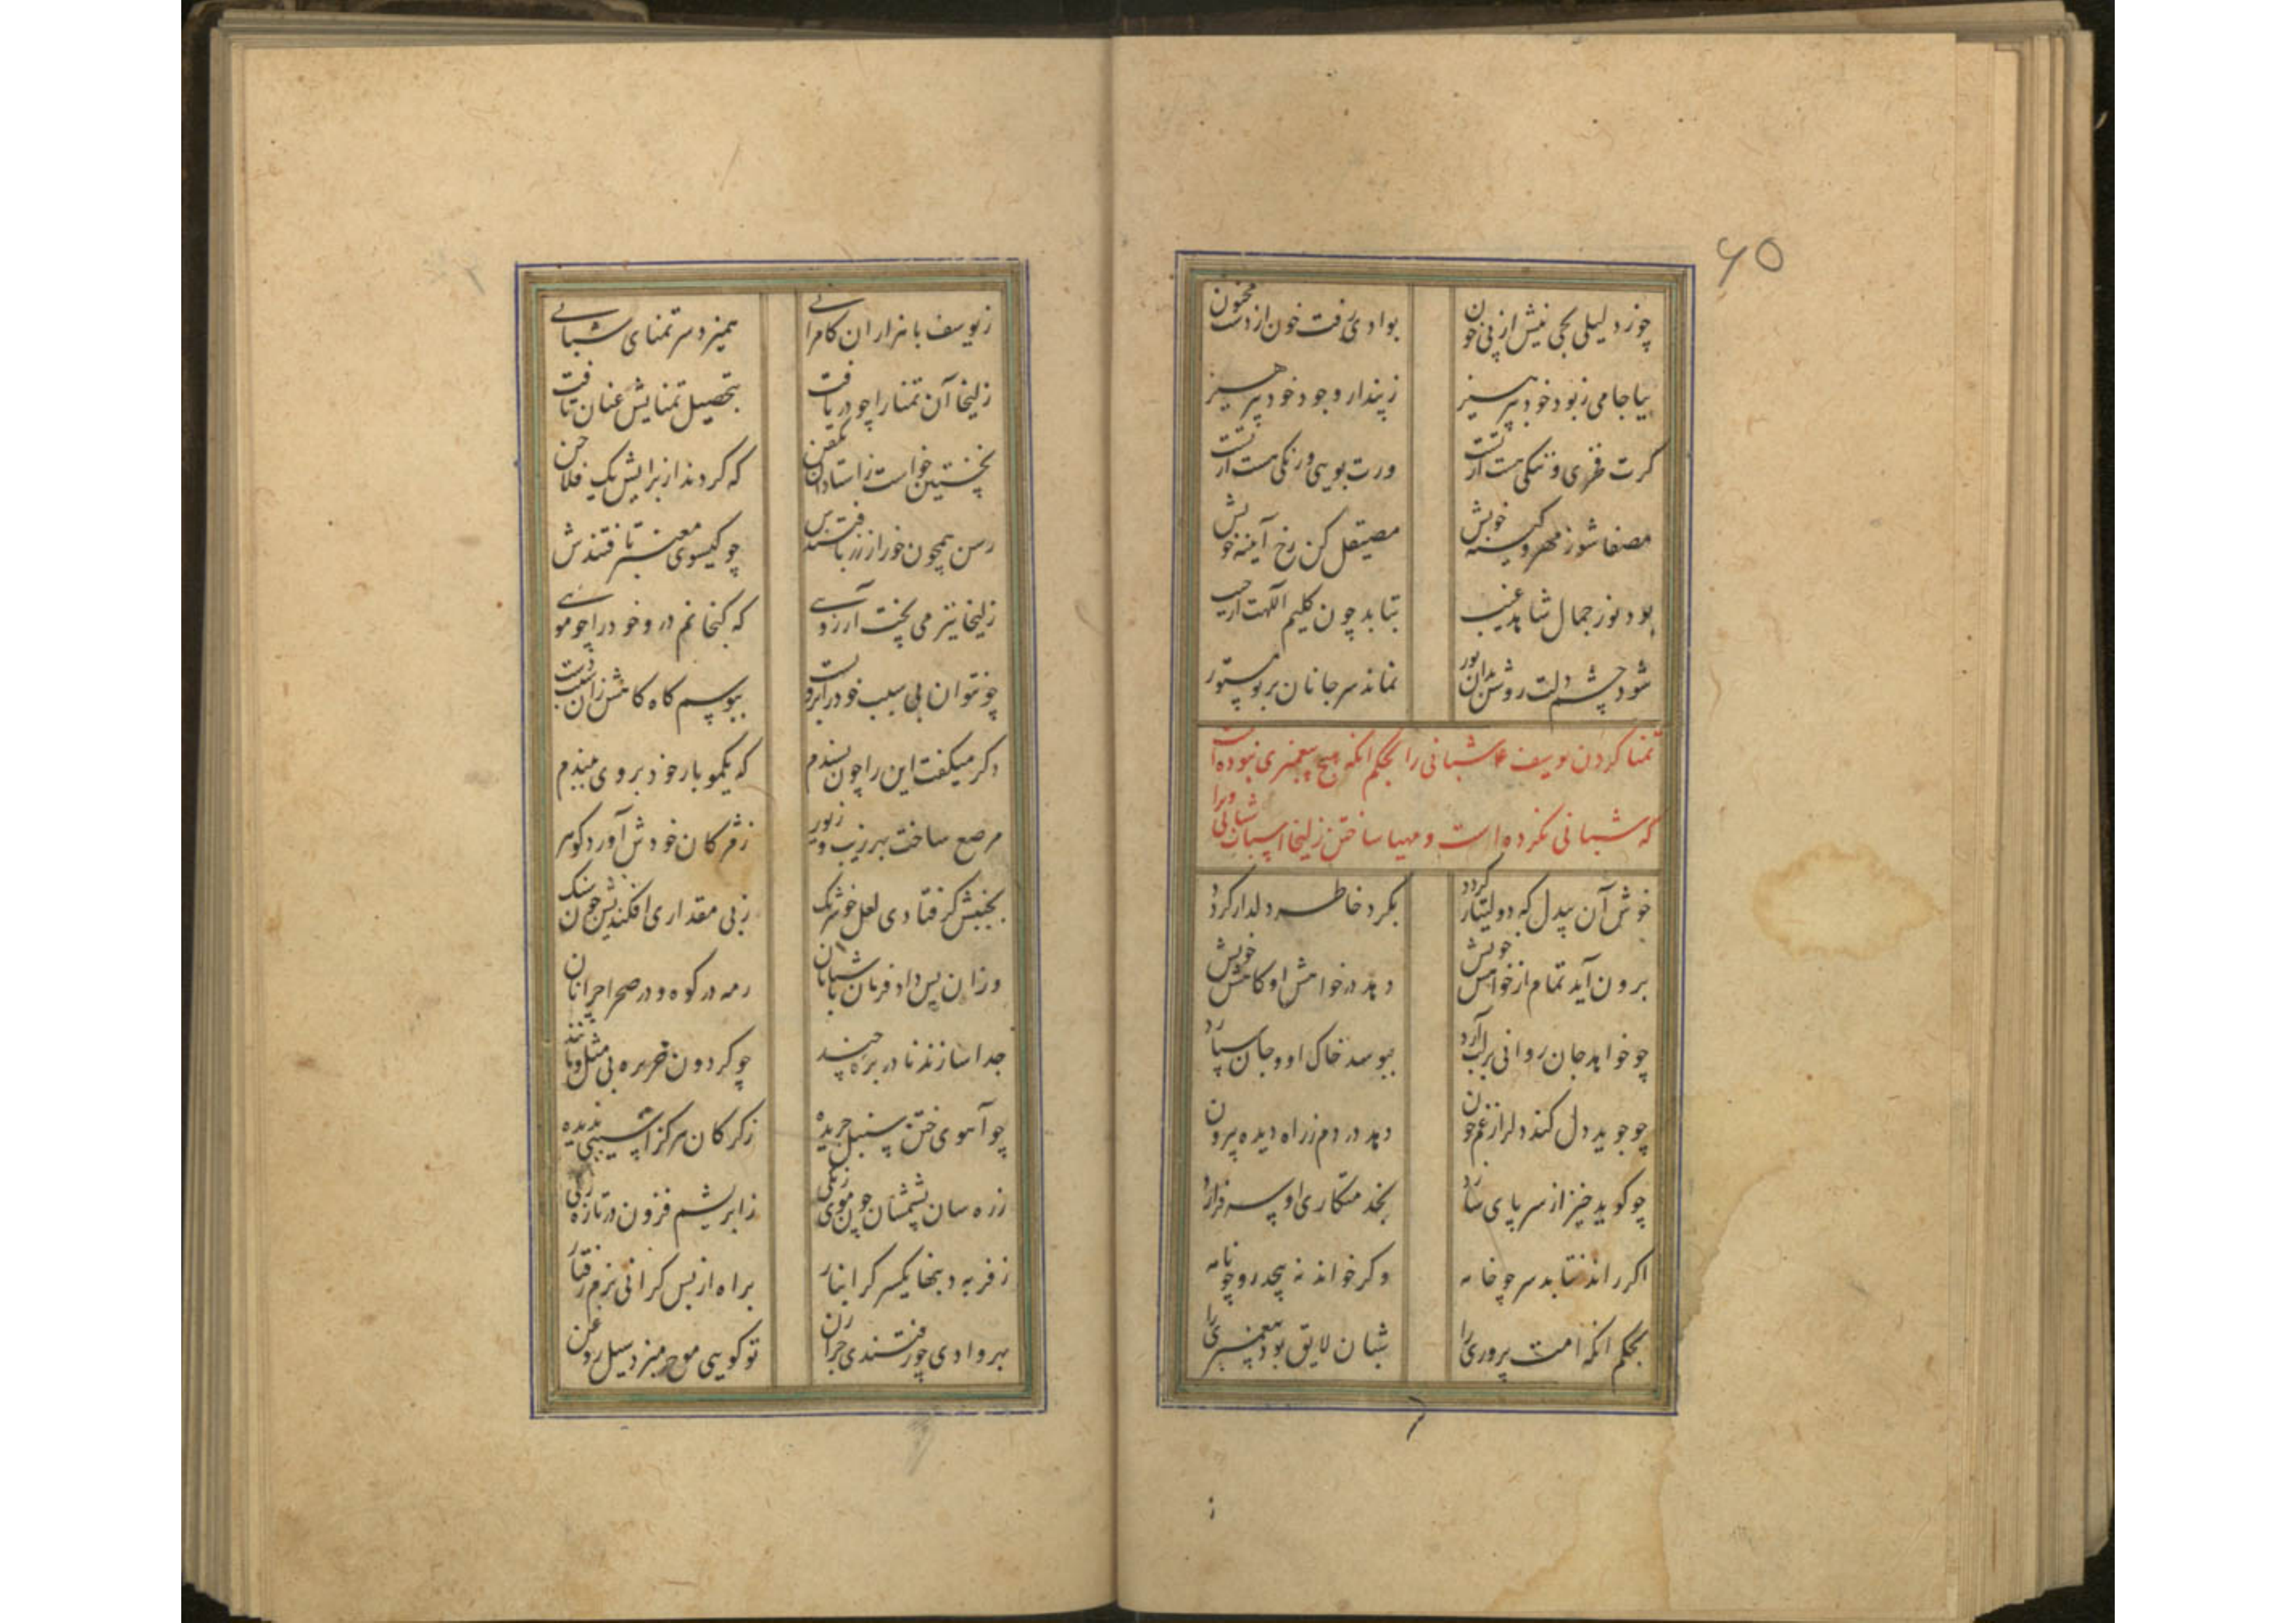 ۶۵
چو زد لیلی یکی نیش از پی خون بوادی رفت خون از دست مجنون
بیا جامی ز بود خود بپرهیز ز پندار وجود خود بپرهیز
کرت فری و رنکی هست ازتست ورت بویی و رنکی هست ازتست
مصفا شو ز مهر و کینه خویش مصیقل کن رخ آینه خویش
بود نور جمال شاهد غیب بتابد چون کلیم اللهت از جیب
شود چشم دلت روشن بدان نور نماند سر جانان بر تو مستور
تمنا کردن یوسف ع شبانی را بحکم انکه هیچ پیغمبری نبوده است
که شبانی نکرده است و مهیا ساختن زلیخا اسباب شبانی ویرا
خوش آن بیدل که دولتیار کردد بکرد خاطر دلدار کردد
برون آید تمام از خواهش خویش دهد در خواهش او کاهش خویش
چو خواهد جان روانی بر لب آرد ببوسد خاک او و جان سپارد
چو جوید دل کند دل از غم خون دهد در دم ز راه دیده بیرون
چو کوید خیز از سر پای سازد بخدمتکاری او سر فرازد
اکر راند نتابد سر چو خامه وکر خواند نه پیچد رو چو نامه
بحکم انکه امت پروری را شبان لایق بود پیغمبری را
ز
ز یوسف با هزاران کامرانی همیزد سر تمنای شبانی
زلیخا آن تمنا را چو دریافت بتحصیل تمنایش عنان تافت
نخستین خواست ز استادان آن فن که کردند از برایش یک فلاخن
رسن همچون خور از زر بافتندش چو کیسوی معنبر تافتندش
زلیخا نیز می پخت آرزویی که کنجانم درو خود را چو مویی
چو نتوان بی سبب خود را برو بست ببوسم کاه کاهش زان سبب دست
دکر میکفت این را چون پسندم که یکمو بار خود بر وی ببندم
مرصع ساخت بهر زیب و زیور ز مژکان خودش آورد کوهر
بجنبش کر فتادی لعل خوش رنک ز بی مقداری افکندیش چون سنک
وزان پس داد فرمان با شبانان رمه در کوه و در صحرا چرانان
جدا سازند نادر بره چند چو کردون بره بی مثل و مانند
چو آهوی ختن سنبل چریده ز کرکان هرکز آسیبی ندیده
زره سان پشمشان چون موی زنکی ز ابریشم فزون در تازه رنکی
ز فربه دنبها یکسر کرانبار براه از بس کرانی نرم رفتار
بهر وادی چو رفتندی چران توکویی موج میزد سیل روغن